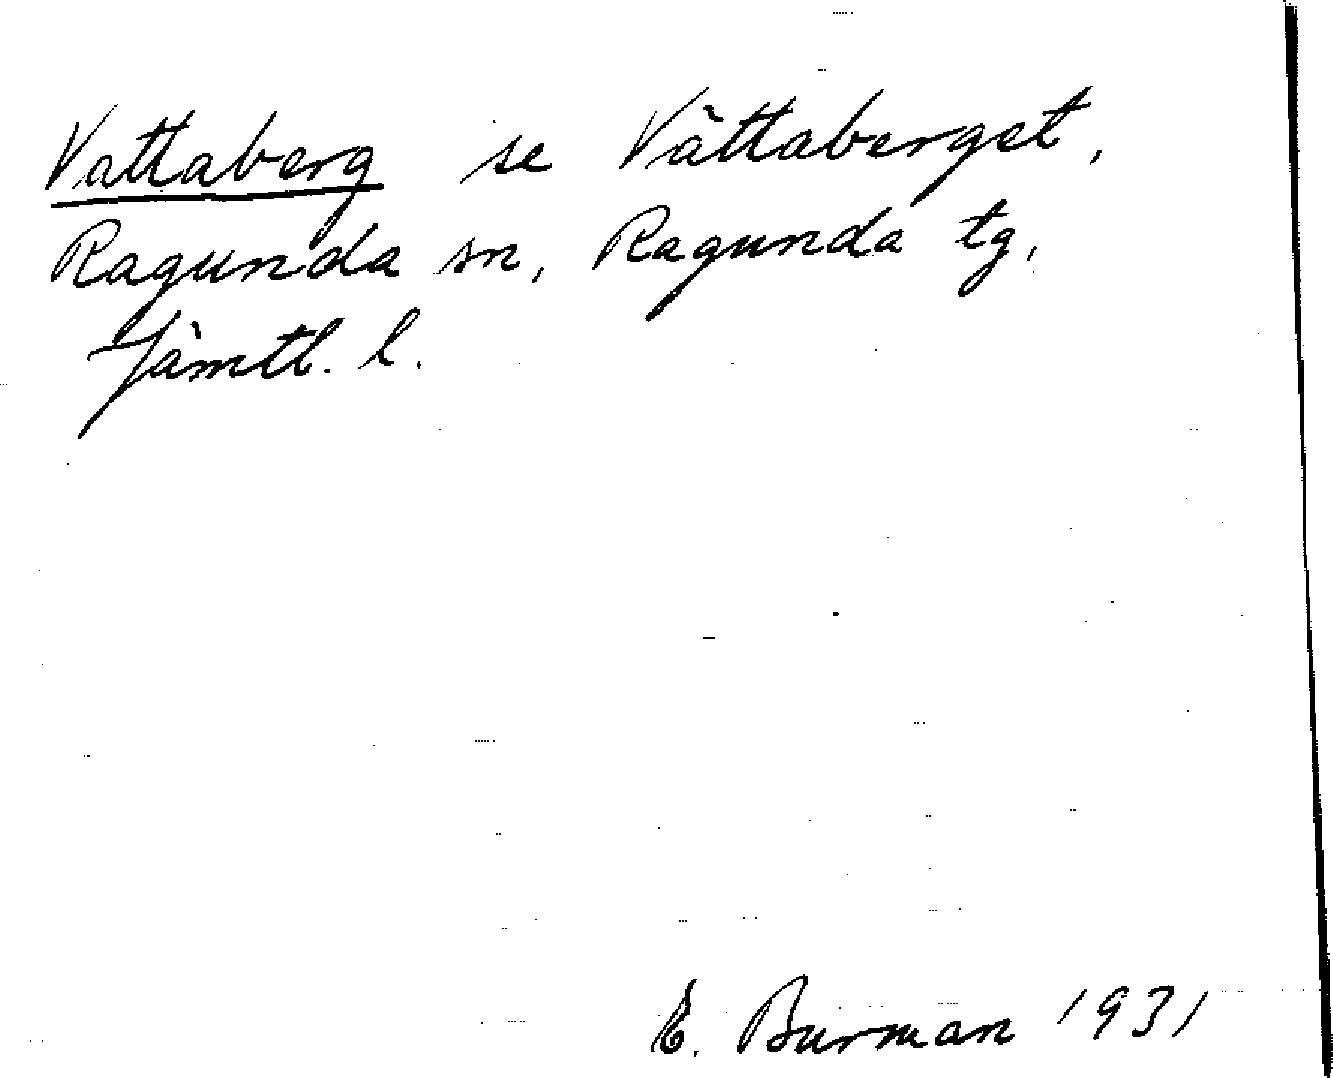 Vattaberg se Vättaberget,
Ragunda sn, Ragunda tg,
Jämtl. l.
E. Burman 1931